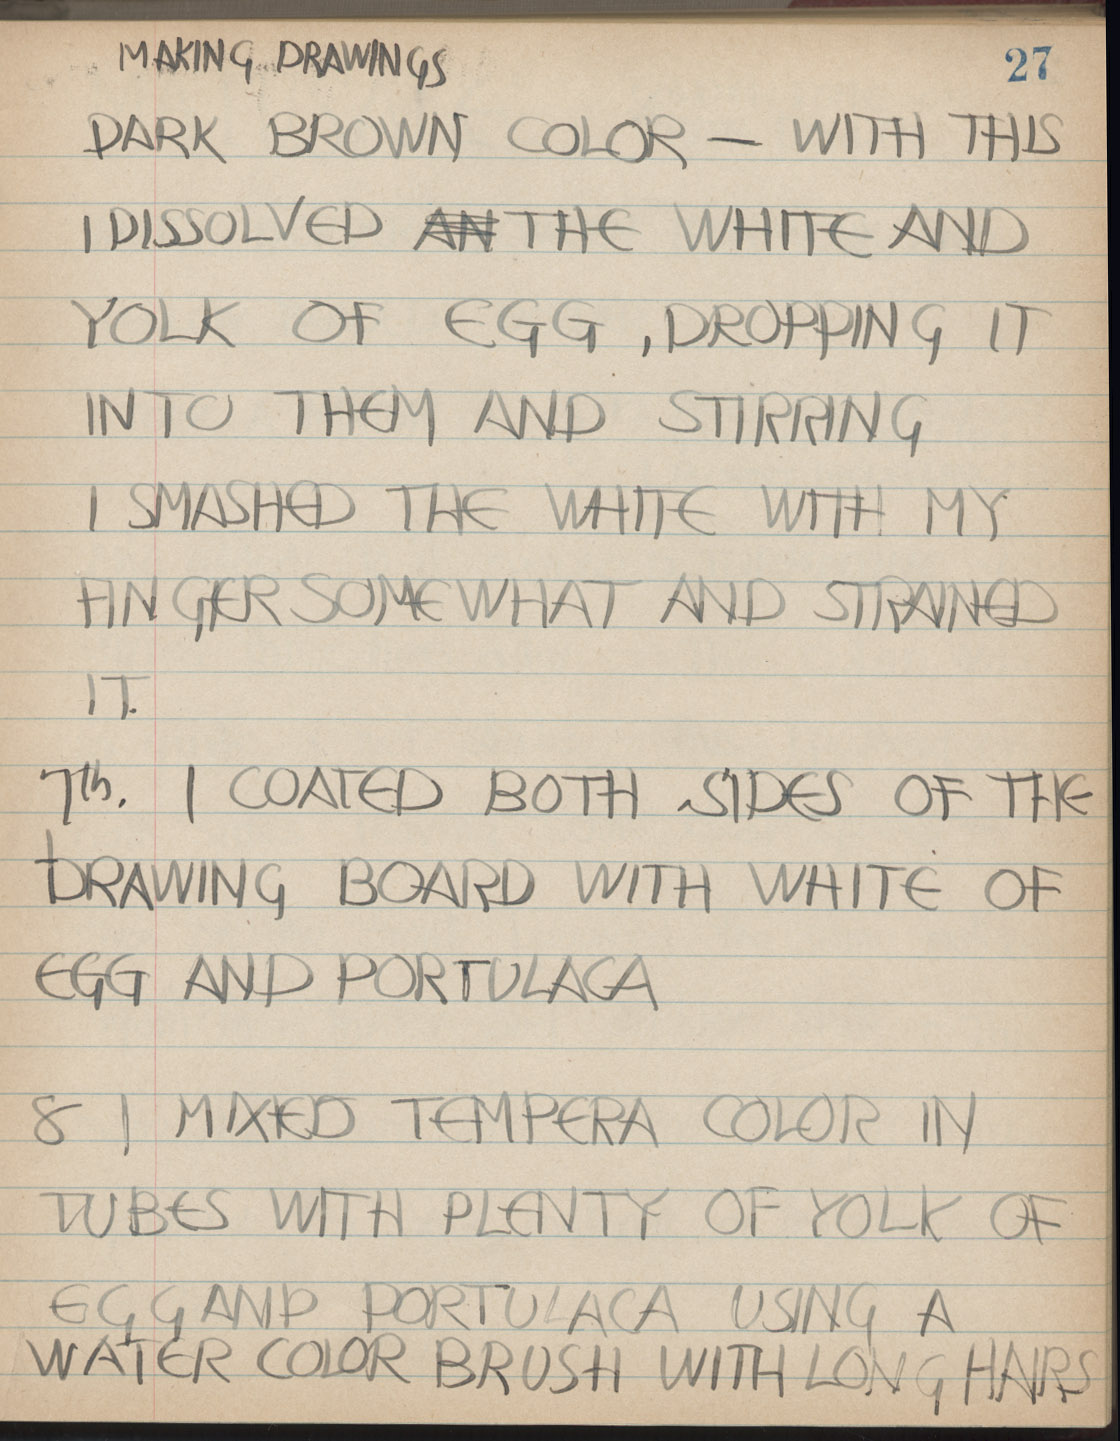 MAKING DRAWINGS 27
DARK BROWN COLOR — WITH THIS
I DISSOLVED AN THE WHITE AND
YOLK OF EGG , DROPPING IT
INTO THEM AND STIRRING
I SMASHED THE WHITE WITH MY
FINGER SOMEWHAT AND STRAINED
IT.
7th. I COATED BOTH SIDES OF THE
DRAWING BOARD WITH WHITE OF
EGG AND PORTULACA
8 I MIXED TEMPERA COLOR IN
TUBES WITH PLENTY OF YOLK OF
EGG AND PORTULACA USING A
WATER COLOR BRUSH WITH LONG HAIRS